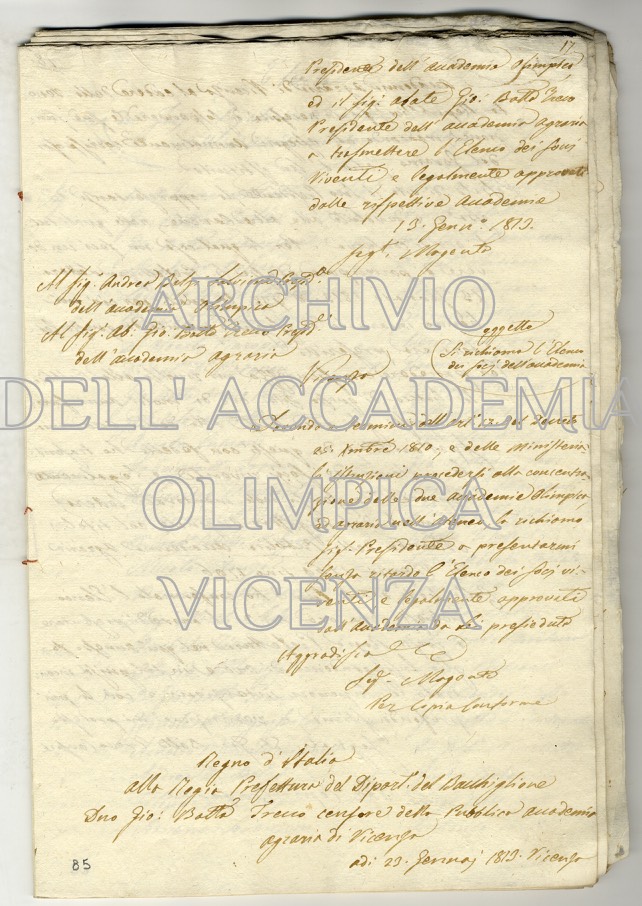 17
Presidente dell'accademia Olimpica
ed il sig: abate Gio: Batta Treco
Presidente dell'accademia Agraria
a trasmettere l'Elenco dei soci
viventi e legalmente approvati
dalle rispettive Accademie
13. Genn.o 1813.
Segt. Magenta
Al sig. Andrea
dell'accademia Olimpica
Al sig. Ab. Gio: Batta Treco Presid.e
dell'accademia agraria
Vicenza
oggetto
Si richiama l'Elenco
dei socj dell'accademia
Dovendo a termini dell'art. 12 del Decreto
25. Xmbre 1810., e delle Ministeria-
li Istruzioni procedersi alla concentra-
zione delle due Accademie Olimpica,
ed agraria nell'Ateneo la richiamo
sig. Presidente a presentarmi
senza ritardo l'Elenco dei socj vi-
venti e legalmente approvati
dall'Accademia da lei presieduta
Aggradisca
Seg. Magenta
Per Copia Conforme
Regno d'Italia
alla Regia Prefettura del Dipart. del Bacchiglione
Duo Gio: Batta Treco censore della Pubblica accademia
agraria di Vicenza
adi 23. Gennaj 1813. Vicenza
85
ARCHIVIO
DELL' ACCADEMIA
OLIMPICA
VICENZA